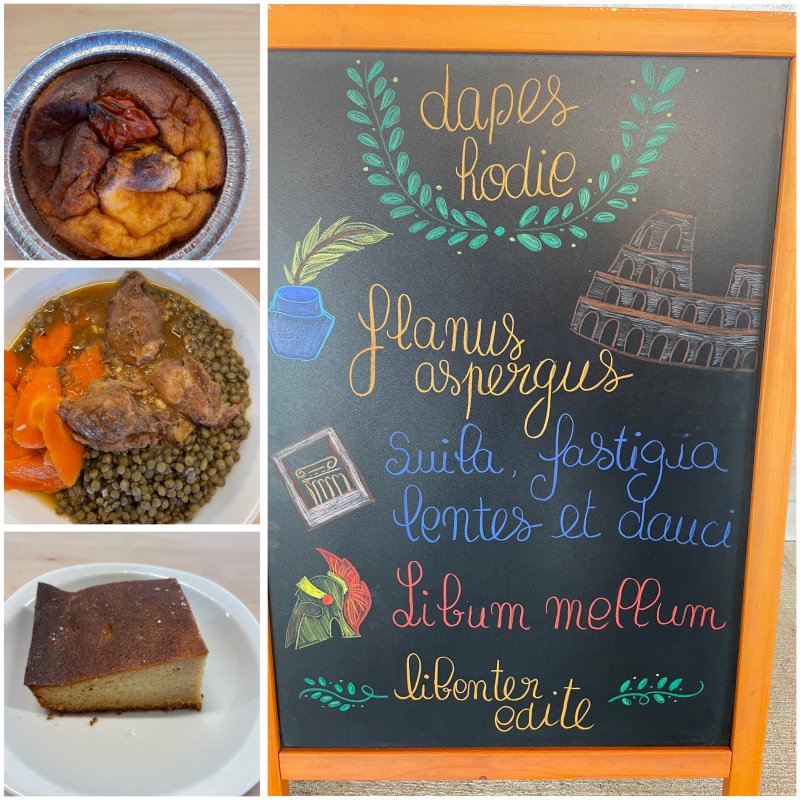 dapes
hodie
flanus
aspergus
suila, fastigia
lentes et dauci
Libum mellum
libenter
edite